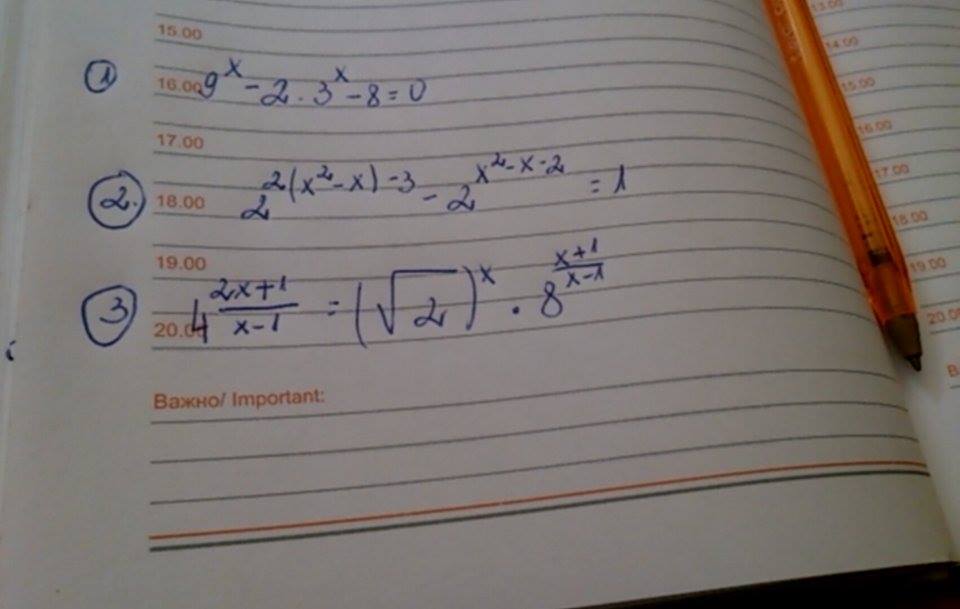 15.00
① 16.00 9^x - 2 . 3^x - 8 = 0
17.00
② 18.00 2^{2(x^2-x)-3} - 2^{x^2-x-2} = 1
19.00
③ 20.00 4^{\frac{2x+1}{x-1}} = (\sqrt{2})^x . 8^{\frac{x+1}{x-1}}
Важно/ Important:
13.00
14.00
15.00
16.00
17.00
18.00
19.00
20.00